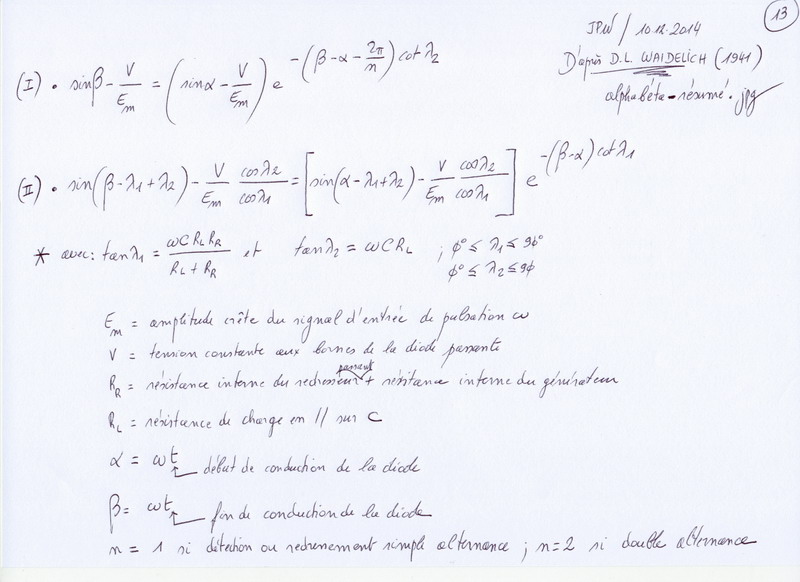 13
JPW / 10.12.2014
D'après D.L. WAIDELICH (1941)
alphabéta-résumé.jpg
(I) • sinβ - V/Em = (sinα - V/Em) e^-(β-α-2π/n) cotλ2
(II) • sin(β-λ1+λ2) - V/Em cosλ2/cosλ1 = [sin(α-λ1+λ2) - V/Em cosλ2/cosλ1] e^-(β-α)cotλ1
* avec: tanλ1 = ωC RL RR / RL + RR et tanλ2 = ωCRL ; ϕ° ≤ λ1 ≤ 9ϕ°
ϕ° ≤ λ2 ≤ 9ϕ
Em = amplitude crête du signal d'entrée de pulsation ω
V = tension constante aux bornes de la diode passante
RR = résistance interne du redresseur passant + résistance interne du générateur
RL = résistance de charge en // sur C
α = ωt début de conduction de la diode
β = ωt fin de conduction de la diode
n = 1 si détection ou redressement simple alternance ; n=2 si double alternance